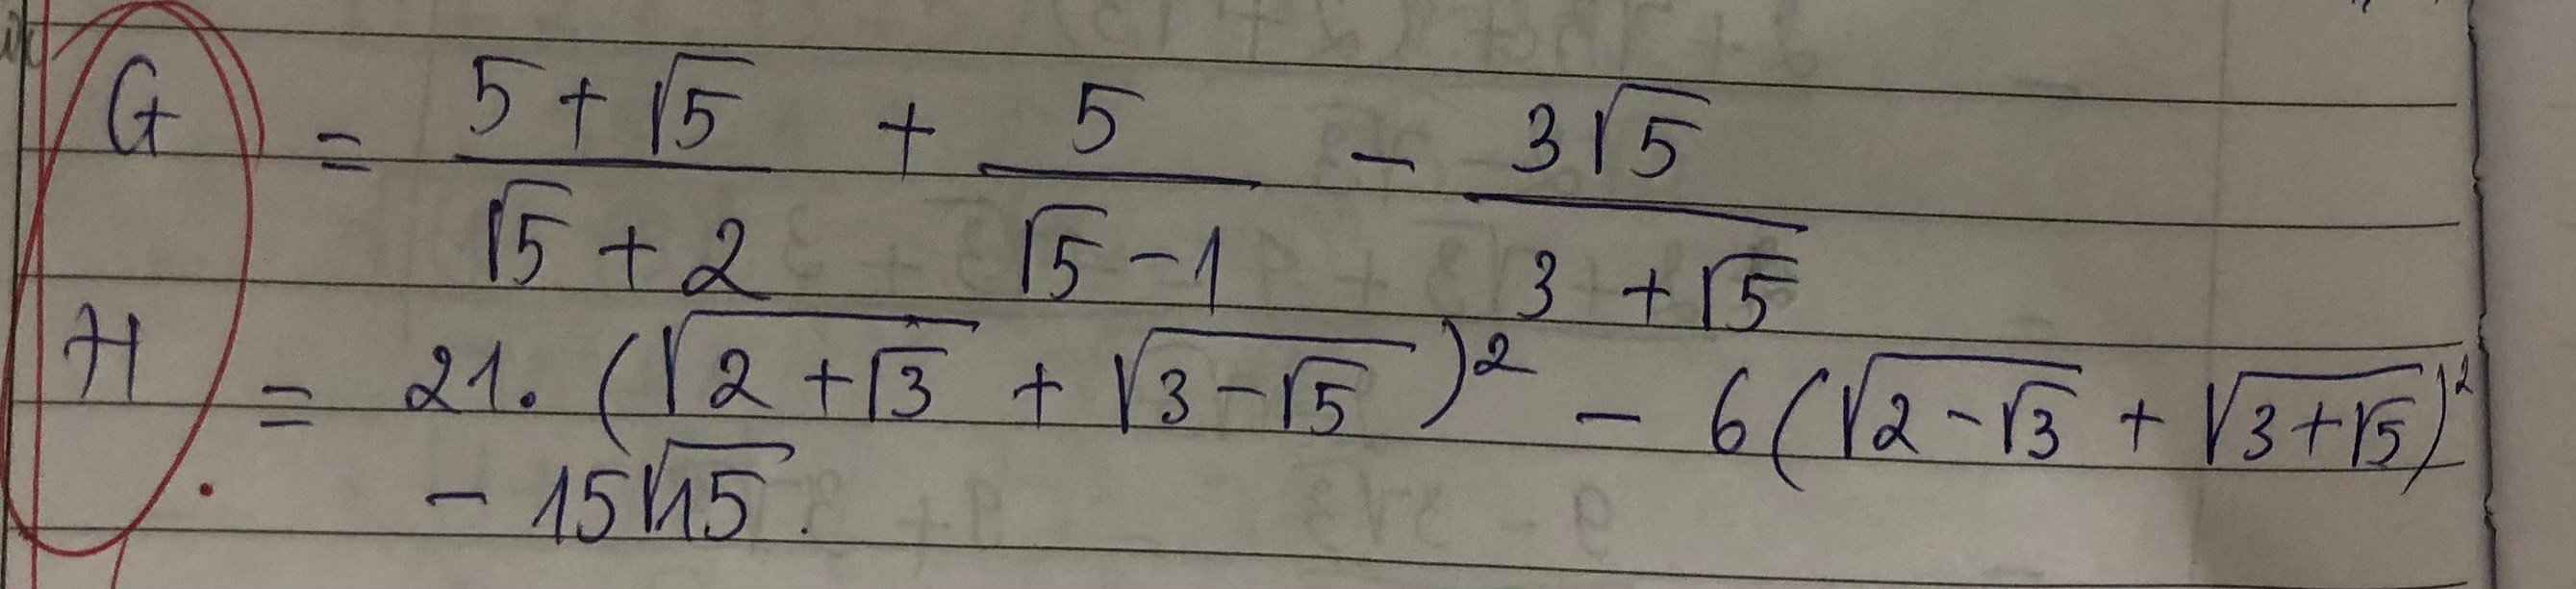 G = (5 + √5)/(√5 + 2) + 5/(√5 - 1) - (3√5)/(3 + √5)
H = 21. (√(2 + √3) + √(3 - √5))² - 6(√(2 - √3) + √(3 + √5))²
- 15√15.